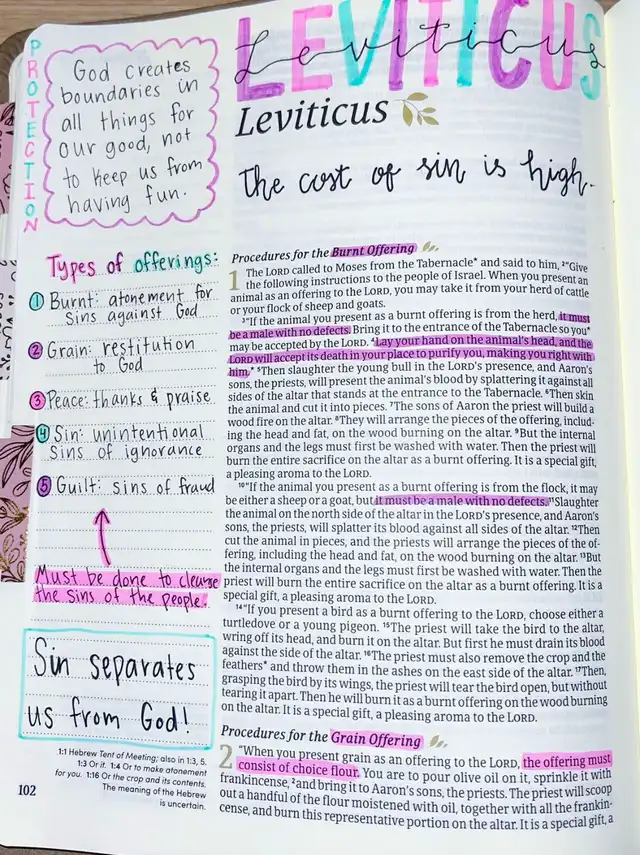 PROTECTION
God creates
boundaries in
all things for
our good, not
to keep us from
having fun.
LEVITICUS
Leviticus
Leviticus
The cost of sin is high.
Types of offerings:
1 Burnt: atonement for
Sins against God
2 Grain: restitution
to God
3 Peace: thanks & praise
4 Sin: unintentional
Sins of ignorance
5 Guilt: sins of fraud
Must be done to cleanse
the sins of the people!
Sin separates
us from God!
1:1 Hebrew Tent of Meeting; also in 1:3, 5.
1:3 Or it. 1:4 Or to make atonement
for you. 1:16 Or the crop and its contents.
The meaning of the Hebrew
is uncertain.
102
Procedures for the Burnt Offering
1 The LORD called to Moses from the Tabernacle* and said to him, 2"Give
the following instructions to the people of Israel. When you present an
animal as an offering to the LORD, you may take it from your herd of cattle
or your flock of sheep and goats.
3"If the animal you present as a burnt offering is from the herd, it must
be a male with no defects. Bring it to the entrance of the Tabernacle so you*
may be accepted by the LORD. 4Lay your hand on the animal's head, and the
LORD will accept its death in your place to purify you, making you right with
him.* 5Then slaughter the young bull in the LORD's presence, and Aaron's
sons, the priests, will present the animal's blood by splattering it against all
sides of the altar that stands at the entrance to the Tabernacle. 6Then skin
the animal and cut it into pieces. 7The sons of Aaron the priest will build a
wood fire on the altar. 8They will arrange the pieces of the offering, includ-
ing the head and fat, on the wood burning on the altar. 9But the internal
organs and the legs must first be washed with water. Then the priest will
burn the entire sacrifice on the altar as a burnt offering. It is a special gift,
a pleasing aroma to the LORD.
10"If the animal you present as a burnt offering is from the flock, it may
be either a sheep or a goat, but it must be a male with no defects. 11Slaughter
the animal on the north side of the altar in the LORD's presence, and Aaron's
sons, the priests, will splatter its blood against all sides of the altar. 12Then
cut the animal in pieces, and the priests will arrange the pieces of the of-
fering, including the head and fat, on the wood burning on the altar. 13But
the internal organs and the legs must first be washed with water. Then the
priest will burn the entire sacrifice on the altar as a burnt offering. It is a
special gift, a pleasing aroma to the LORD.
14"If you present a bird as a burnt offering to the LORD, choose either a
turtledove or a young pigeon. 15The priest will take the bird to the altar,
wring off its head, and burn it on the altar. But first he must drain its blood
against the side of the altar. 16The priest must also remove the crop and the
feathers* and throw them in the ashes on the east side of the altar. 17Then,
grasping the bird by its wings, the priest will tear the bird open, but without
tearing it apart. Then he will burn it as a burnt offering on the wood burning
on the altar. It is a special gift, a pleasing aroma to the LORD.
Procedures for the Grain Offering
2 "When you present grain as an offering to the LORD, the offering must
consist of choice flour. You are to pour olive oil on it, sprinkle it with
frankincense, 2and bring it to Aaron's sons, the priests. The priest will scoop
out a handful of the flour moistened with oil, together with all the frankin-
cense, and burn this representative portion on the altar. It is a special gift, a